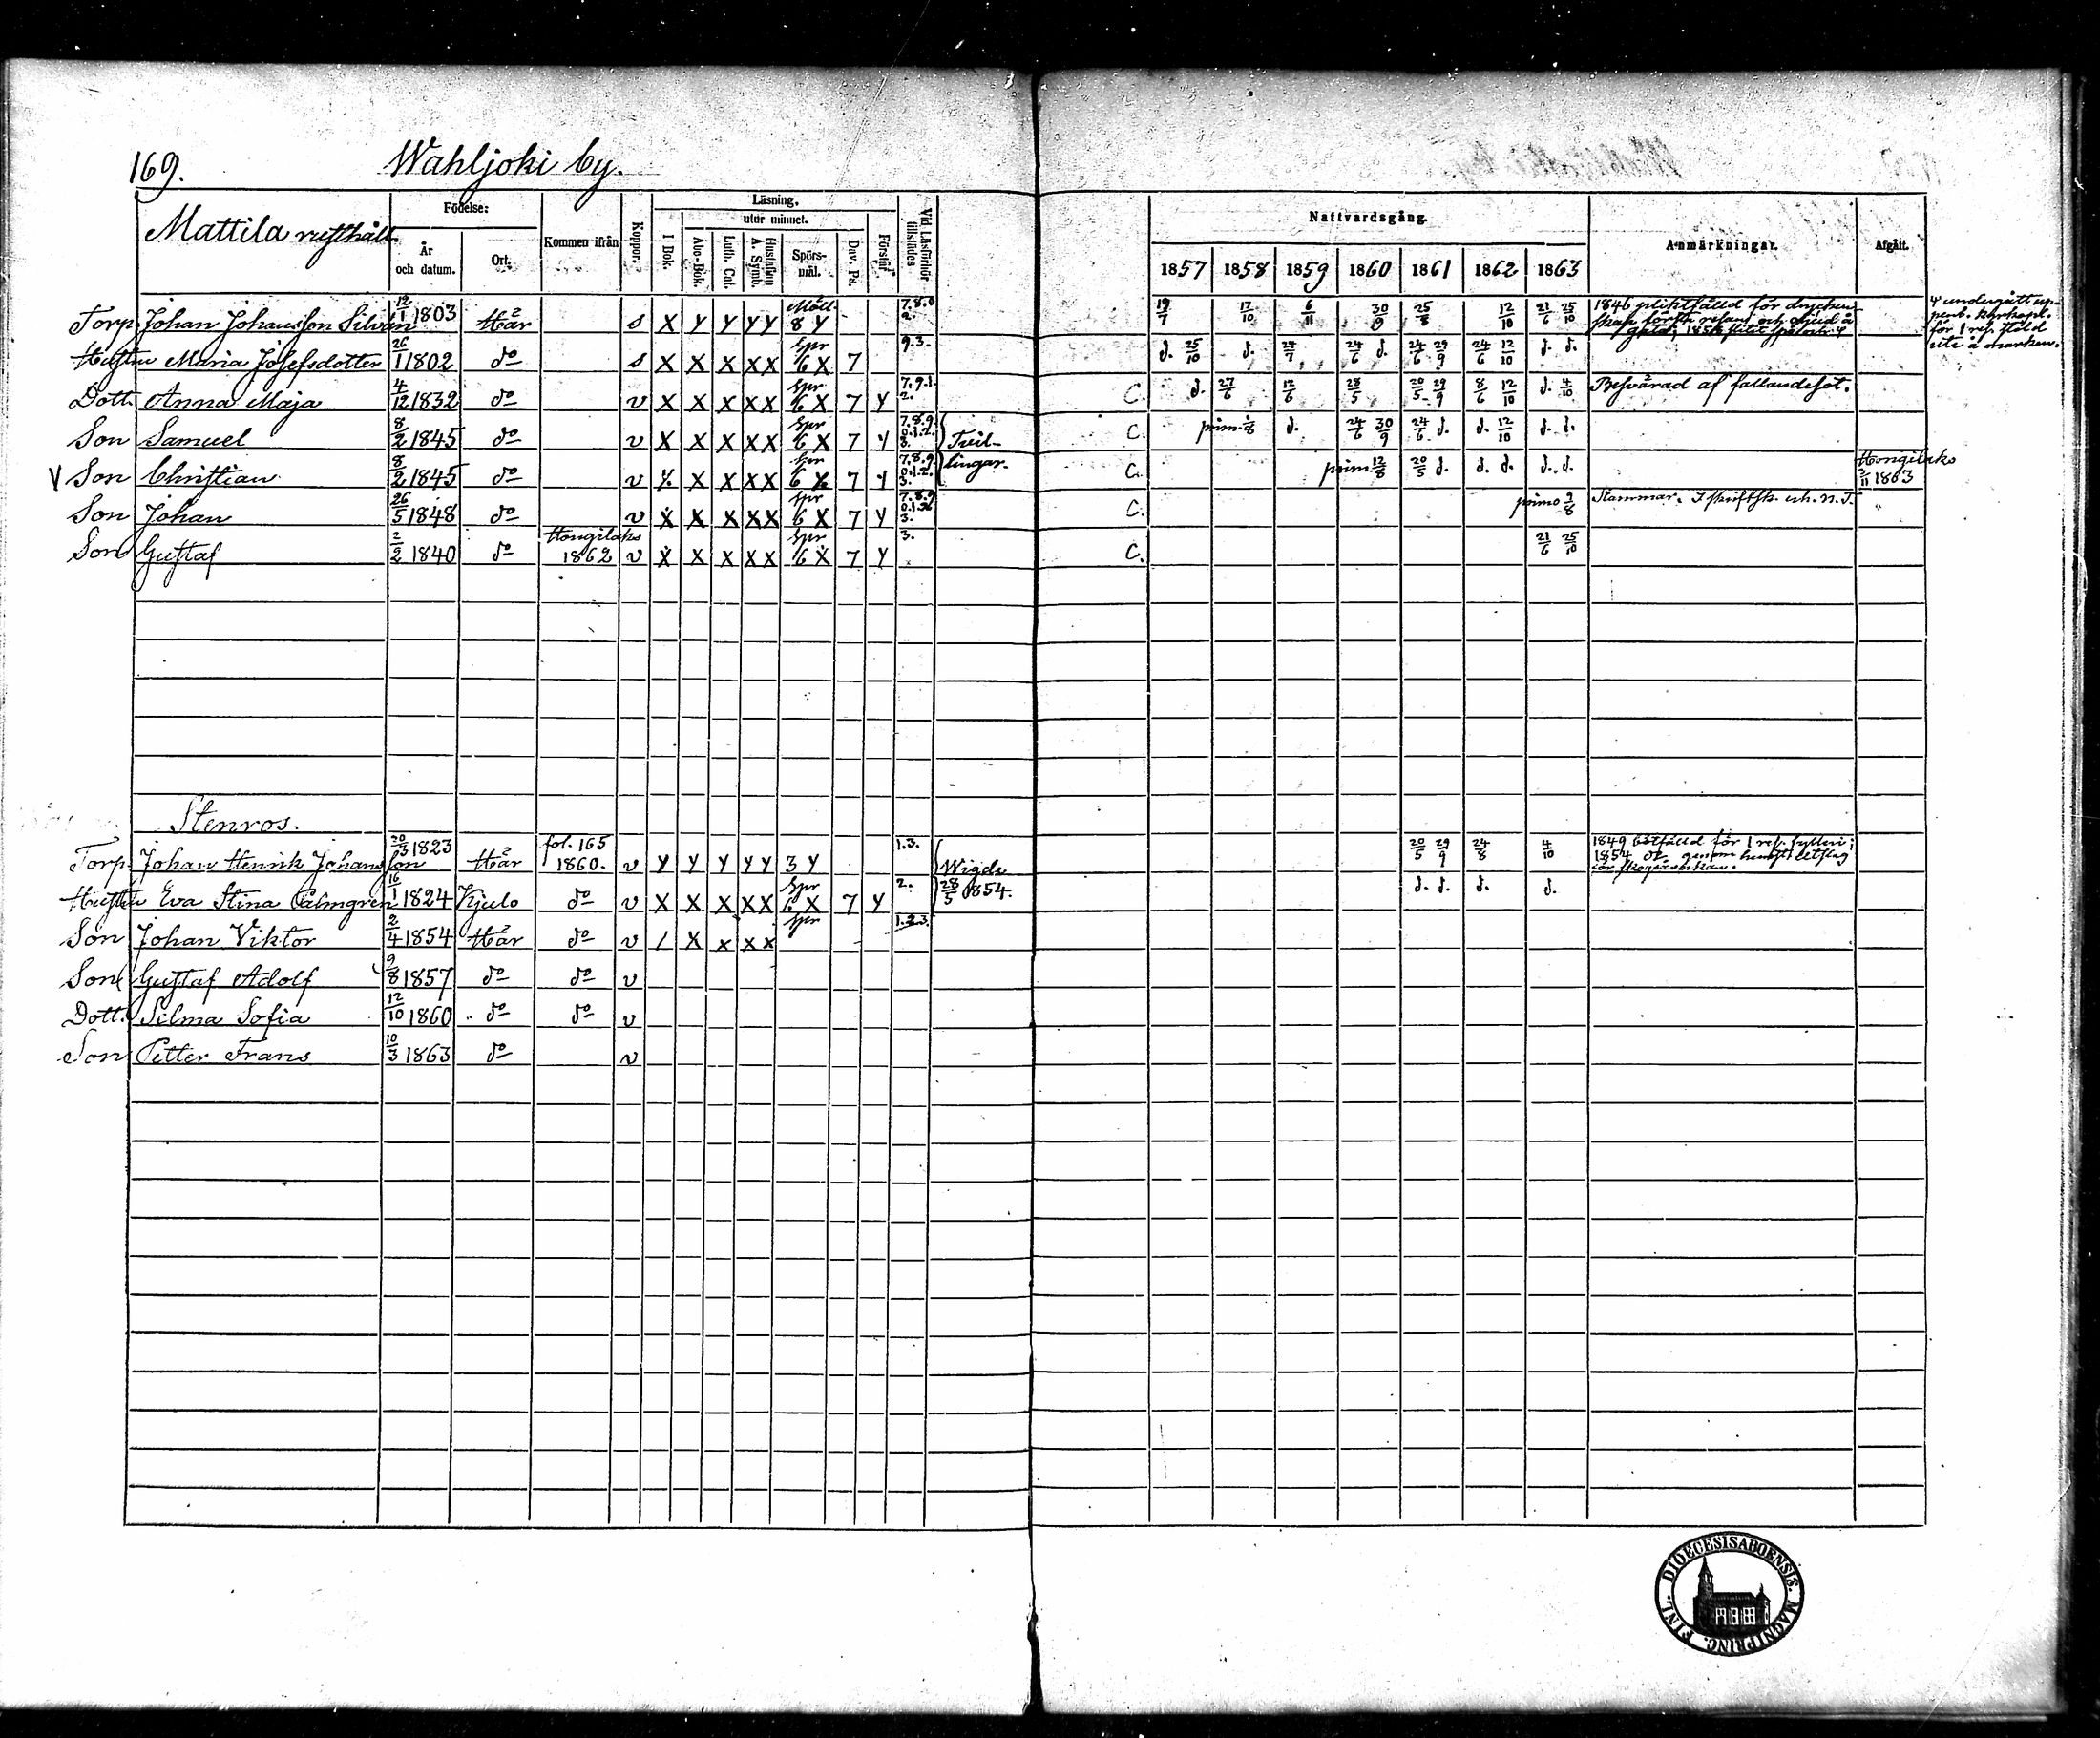 169. Wahljoki by.
Mattila rusthåll.
Födelse:
År och datum.
Ort.
Kommen ifrån
Koppor.
Läsning.
I Bok.
utur minnet.
Abc-Bok.
Luth. Cat.
Hustaflan A. Symb.
Spörsmål.
Dav. Ps.
Förstår
Vid Läsförhör tillstädes
Nattvardsgång.
1857 1858 1859 1860 1861 1862 1863
Anmärkningar.
Afgått.
Torp. Johan Johansson Silvan 12/1 1803 Här s X Y Y Y Y 8 Y 7.8.0 2. 19/7 17/10 6/11 30/9 25/8 12/10 21/6 25/10 1846 pliktfälld för dryckenskap
Hustru Maria Josefsdotter 26/1 1802 do s X X X X X Spr 6 X 7 9.3. d. 25/10 d. 24/7 24/6 d. 24/6 29/9 24/6 12/10 d. d.
Dott. Anna Maja 4/12 1832 do v X X X X X Spr 6 X 7 Y 7.9.1. 2. C. d. 27/6 12/6 28/5 20/5 29/9 8/6 12/10 d. 4/10 Besvärad af fallandesot.
Son Samuel 8/2 1845 do v X X X X X Spr 6 X 7 Y 7.8.9. 0.1.2. 3. Tvil- C. prim. d. 24/6 30/9 24/6 d. d. 12/10 d. d.
V Son Christian 8/2 1845 do v X X X X X Spr 6 X 7 Y 7.8.9. 0.1.2. 3. lingar. C. prim. 12/8 20/5 d. d. d. d. d. Hongilaks 2/11 1863
Son Johan 26/5 1848 do v X X X X X Spr 6 X 7 Y 7.8.9 3. C. primo Stammar.
Son Gustaf 2/2 1840 do Hongilaks 1862 v X X X X X Spr 6 X 7 Y 3. C. 21/6 25/10
Stenros.
Torp. Johan Henrik Johansson 20/3 1823 Här fol. 165 1860. v Y Y Y Y Y 3 Y 1.3. Wigde 20/5 29/9 24/8 4/10 1849 bötfälld för 1 res. fylleri;
Hustru Eva Stina Palmgren 16/1 1824 Kjulo do v X X X X X Spr 6 X 7 Y 2. 28/5 1854. d. d. d. d.
Son Johan Viktor 2/4 1854 Här do v / X X X X Spr 1.2.3.
Son Gustaf Adolf 9/8 1857 do do v
Dott. Silma Sofia 12/10 1860 do do v
Son Petter Frans 10/3 1863 do v
DIOECESIS ABOENSIS. MAGNI PRINC. FINL.